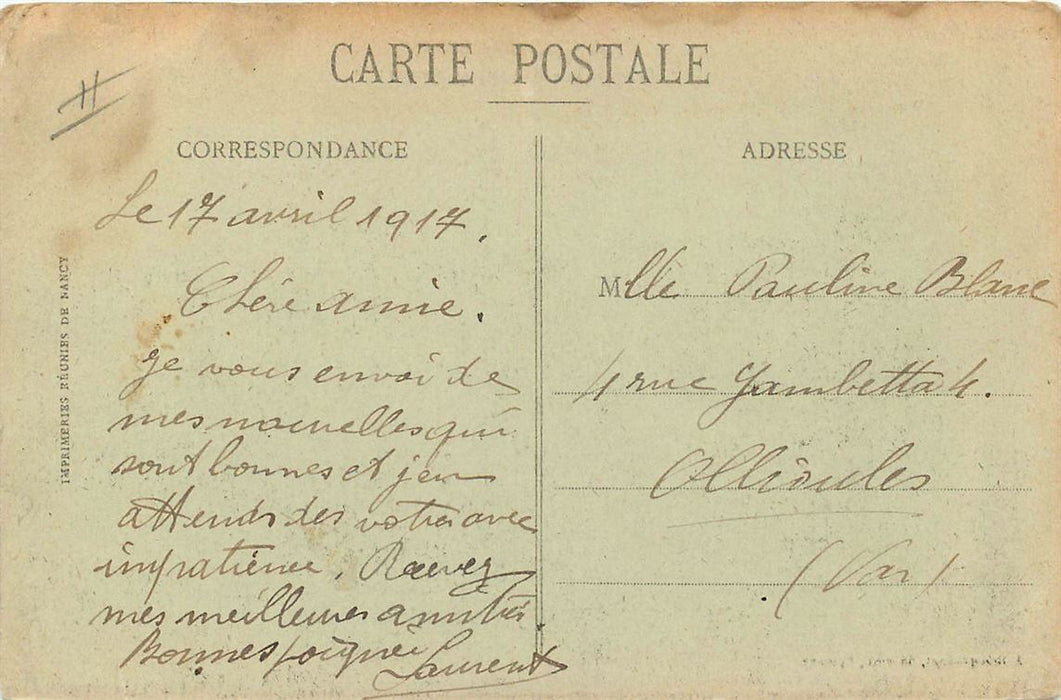 CARTE POSTALE
CORRESPONDANCE
Le 17 avril 1917.
Chère amie.
je vous envoi de
mes nouvelles qui
sont bonnes et j'en
attends des votres avec
impatience. Recevez
mes meilleures amitiés.
Bonnes poignées
Laurent
IMPRIMERIES RÉUNIES DE NANCY
ADRESSE
Mlle Pauline Blanc
4 rue Gambetta 4.
Ollioules
(Var)